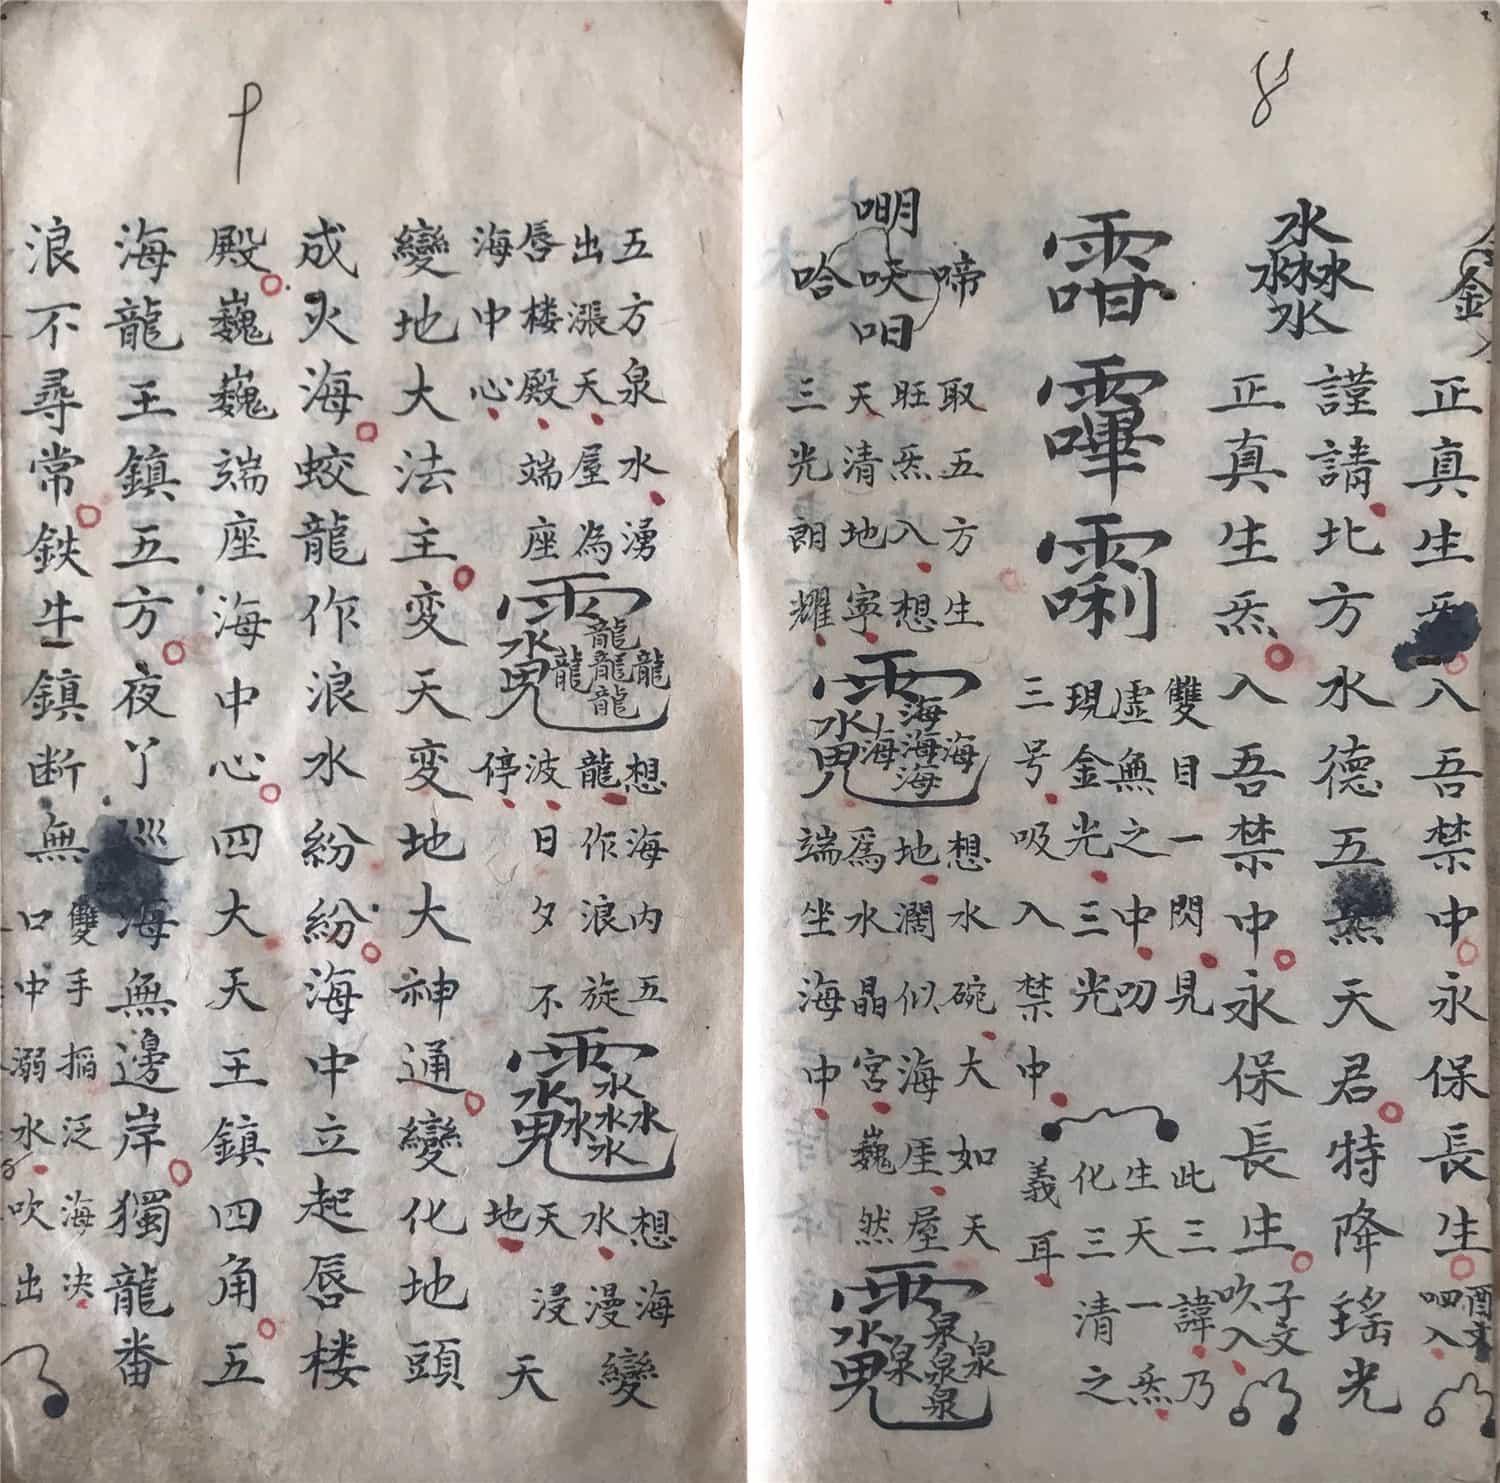 8
金
正真生炁入吾禁中永保長生
酉文
呬入
謹請北方水德五炁天君特降瑤光
水
水水水
水
正真生炁入吾禁中永保長生
子文
吹入
雙目一閃見
虛無之中叨
現金光三光
三号吸入禁中
此三諱乃
生天一炁
化三清之
義耳
取五方生
旺炁入想
天清地寧
三光朗耀
海
海海海
海
想水碗大如天
地濶似海厓屋
爲水晶宮巍然
端坐海中
泉
泉泉泉
泉
9
五方泉水湧
出漲天屋為
唇楼殿端座
海中心
龍
龍龍龍
龍
想海内五
龍作浪旋
波日夕不
停
水
水水水
水
想海
水漫
天浸
地
變天
變地大法主変天変地大神通變化地頭
成火海蛟龍作浪水紛紛海中立起唇楼
殿巍巍端座海中心四大天王鎮四角五
海龍王鎮五方夜丫巡海無邊岸獨龍番
浪不尋常鉄牛鎮断無
雙手搯泛海决
口中溺水吹出